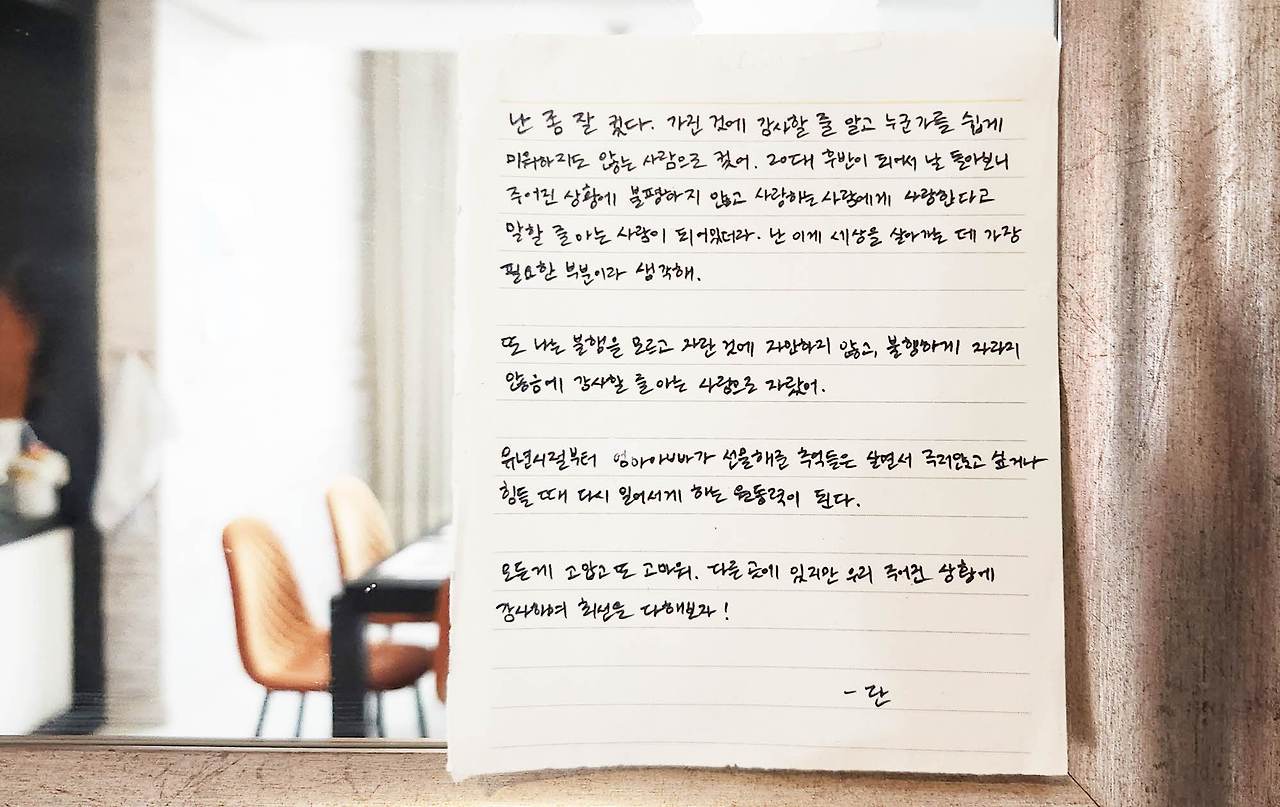 난 좀 잘 컸다. 가진 것에 감사할 줄 알고 누군가를 쉽게
미워하지도 않는 사람으로 컸어. 20대 후반이 되어서 날 돌아보니
주어진 상황에 불평하지 않고 사랑하는 사람에게 사랑한다고
말할 줄 아는 사람이 되어있더라. 난 이게 세상을 살아가는 데 가장
필요한 부분이라 생각해.
또 나는 불행을 모르고 자란 것에 자만하지 않고, 불행하게 자라지
않음에 감사할 줄 아는 사람으로 자랐어.
유년시절부터 엄마아빠가 선물해준 추억들은 살면서 주저앉고 싶거나
힘들 때 다시 일어서게 하는 원동력이 된다.
모든게 고맙고 또 고마워. 다른 곳에 있지만 우리 주어진 상황에
감사하며 최선을 다해보자!
- 단